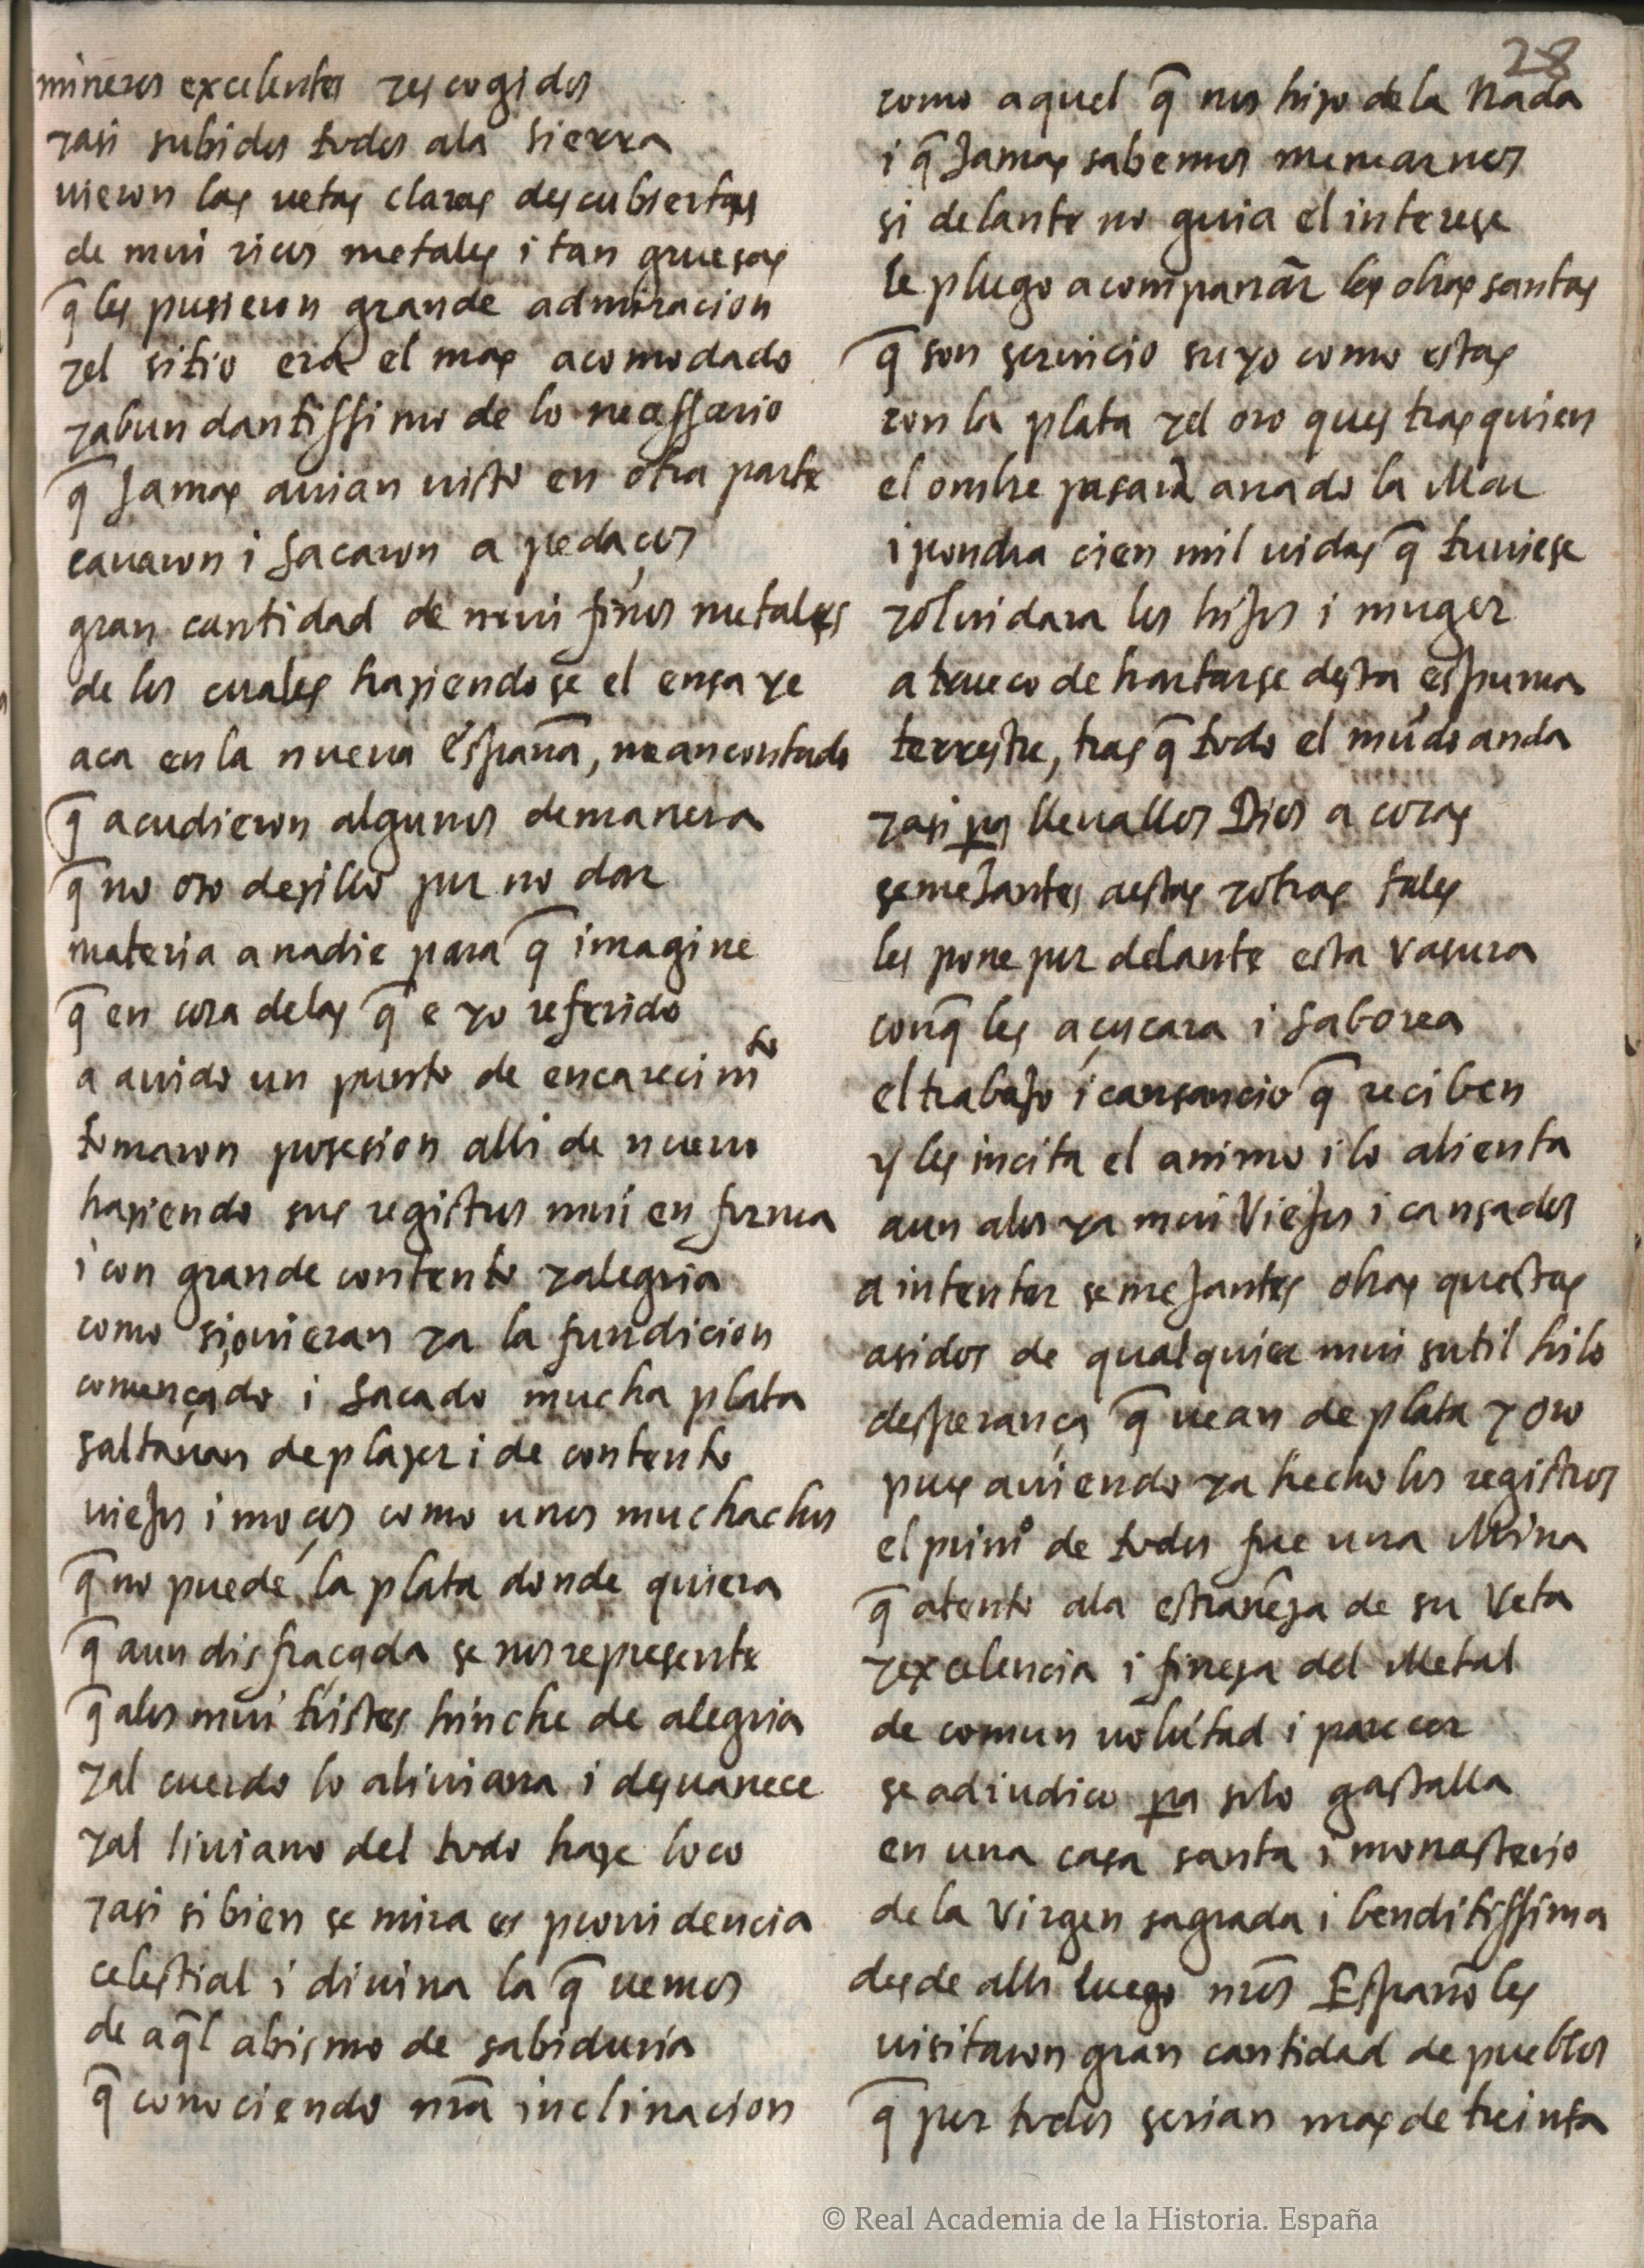 28
mineros excelentes yescogidos
yasi subidos todos ala sierra
uieron las uetas claras descubiertas
de mui ricos metales i tan gruesas
q̃ les pusieron grande admiracion
yel sitio era el mas acomodado
yabundantissimo de lo necessario
q̃ Jamas auian uisto en otra parte
cauaron i sacaron a pedaços
gran cantidad de mui finos metales
de los cuales haziendose el ensaye
aca en la nueua España, me an contado
q̃ acudieron algunos demanera
q̃ no oso dezillo por no dar
materia a nadie para q̃ imagine
q̃ en cosa delas q̃ e yo referido
a auido un punto de encarecimto
tomaron posesion alli de nueuo
haziendo sus registros mui en forma
i con grande contento yalegria
como si ouieran ya la fundicion
començado i sacado mucha plata
saltauan de plazer i de contento
uiejos i moços como unos muchachos
q̃ no puede la plata donde quiera
q̃ aun disfraçada se nos represente
q̃ alos mui tristes hinche de alegria
yal cuerdo lo aliuiana i desuanece
yal liuiano del todo haze loco
yasi si bien se mira es prouidencia
celestial i diuina la q̃ uemos
de aq̃l abismo de sabiduria
q̃ conociendo nrã inclinacion
como aquel q̃ nos hizo de la Nada
i q̃ Jamas sabemos menearnos
si delante no guia el interese
le plugo acompañar las obras santas
q̃ son seruicio suyo como estas
con la plata yel oro ques tras quien
el ombre pasara a nado la Mar
i pondra cien mil uidas q̃ tuuiese
yoluidara los hijos i muger
a trueco de hartarse desta espuma
terrestre, tras q̃ todo el mũdo anda
yasi pa lleuallos Dios a cosas
semejantes aestas yotras tales
les pone por delante esta Vasura
conq̃ les açucara i saborea
el trabajo i cansancio q̃ reciben
y les incita el animo i lo alienta
aun alos ya mui Viejos i cansados
a intentar semejantes obras questas
asidos de qualquier mui sutil hilo
desperança q̃ uean de plata y oro
pues auiendo ya hecho los registros
el primo de todos fue una Mina
q̃ atento ala estrañeza de su Veta
yexcelencia i fineza del Metal
de comun uolũtad i parecer
se adiudico pa solo gastalla
en una casa santa i monasterio
de la Virgen sagrada i benditissima
desde alli luego nrõs Españoles
uisitaron gran cantidad de pueblos
q̃ por todos serian mas de treinta
© Real Academia de la Historia. España